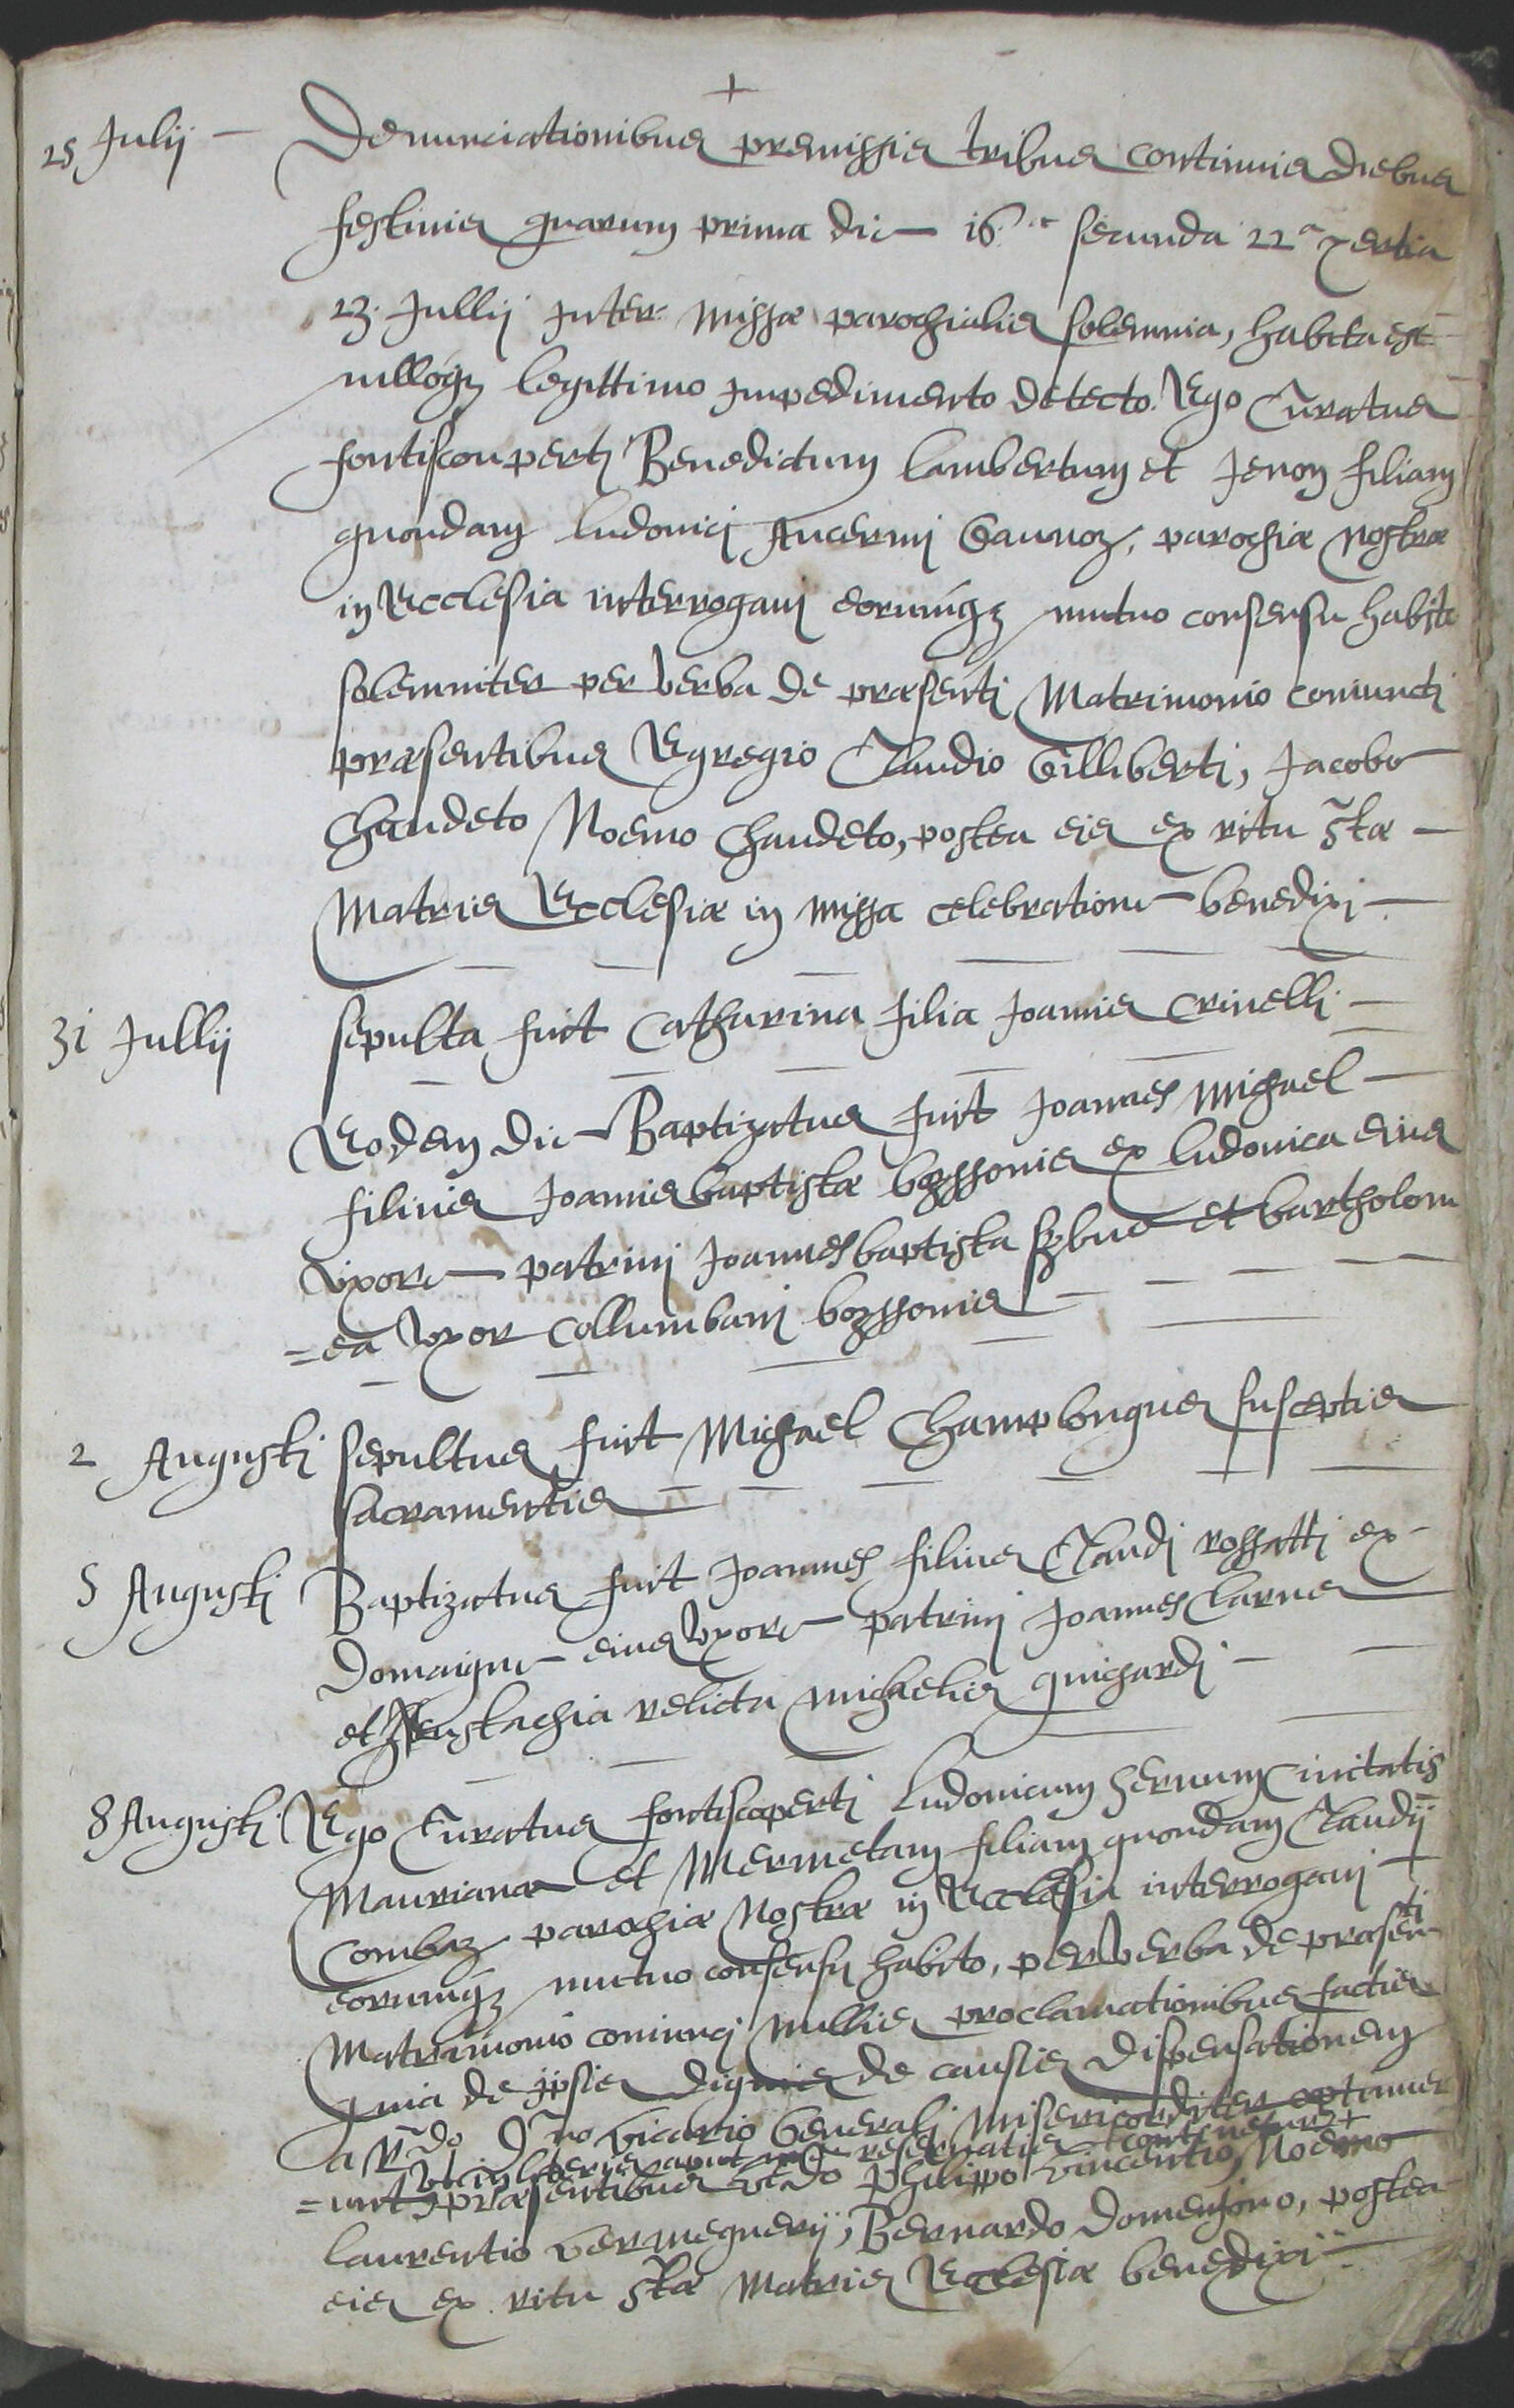 +
25 Julij — Denunciationibus premissis tribus continuis diebus
festivis quarum prima die 16.a secunda 22a tertia
23. Jullij Inter missæ parochialis solemnia, habita est
nullóqz legittimo Impedimento detecto. Ego Curatus
fontiscouperti Benedictum lambertum et Jenon filiam
quondam ludovici Ancermi Gaunoz, parochiæ nostræ
in Ecclesia interrogavi eorumqz mutuo consensu habito
solemniter per verba de præsenti Matrimonio coniunxi
præsentibus Egregio Claudio Gilliberti, Jacobo
Chaudeto Noemo Chaudeto, postea eis ex ritu stæ —
Matris Ecclesiæ in missa celebratione benedixi —
31 Jullij sepulta fuit Catharina filia Joannis Crinelli —
Eodem die Baptizatus fuit Joannes Michael —
filius Joannis baptistæ bozssonis ex ludovica eius
Uxore patrini Joannes baptista et bartholom
=ea Uxor Collumbani bozssonis —
2 Augusti sepultus fuit Michael Champlongus susceptis
sacramentis —
5 Augusti Baptizatus fuit Joannes filius Claudi rossatti ex
Domaigne eius Uxore patrini Joannes Clarus
et Eustachia relicta michaelis guichardi —
8 Augusti Ego Curatus fontiscoperti Ludovicum hernum Civitatis
Maurianæ et Mermetam filiam quondam Claudij
Combaz parochiæ Nostræ in Ecclesia interrogavi
eorumqz mutuo consensu habito, per verba de præsenti
Matrimonio coniunxi Nullis proclamationibus factis
quia de ipsis dignis de causis Dispensationem
a Rdo Dno Vicario Generali Misericorditer optinuer
Ut in literis apud me reservatis continetur +
=unt præsentibus Vdo Philippo Vincentio, Noemo
laurentio Vermegnerij, Bernardo Domenjono, postea
eis ex ritu stæ Matris Ecclesiæ benedixi —